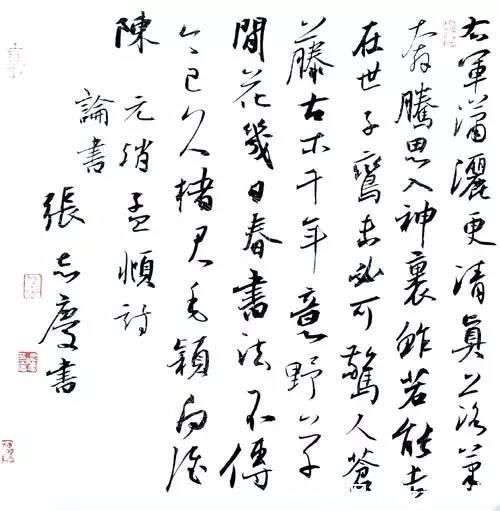 右軍瀟灑更清真落筆
奔騰思入神裹鮓若能長
在世子鸞未必可驚人蒼
藤古木千年意野草
閒花幾日春書法不傳
今已久楮君毛穎向誰
陳 元趙孟頫詩
論書
張志慶書